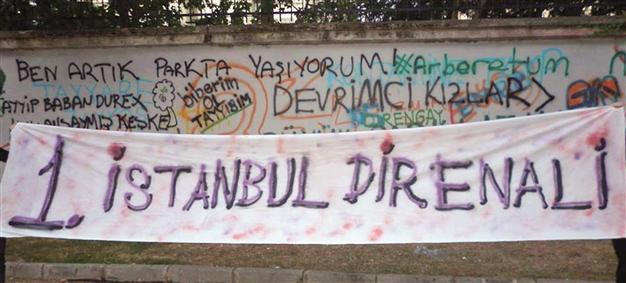 BEN ARTIK PARKTA YAŞIYORUM! #Arberetum
TAYYARE
TAYYIP BABAN DUREX
biberim
OK
TATLIYIM
DEVRİMCİ KIZLAR>
KEŞKE
DİRENGAY
1. İSTANBUL DİRENALİ